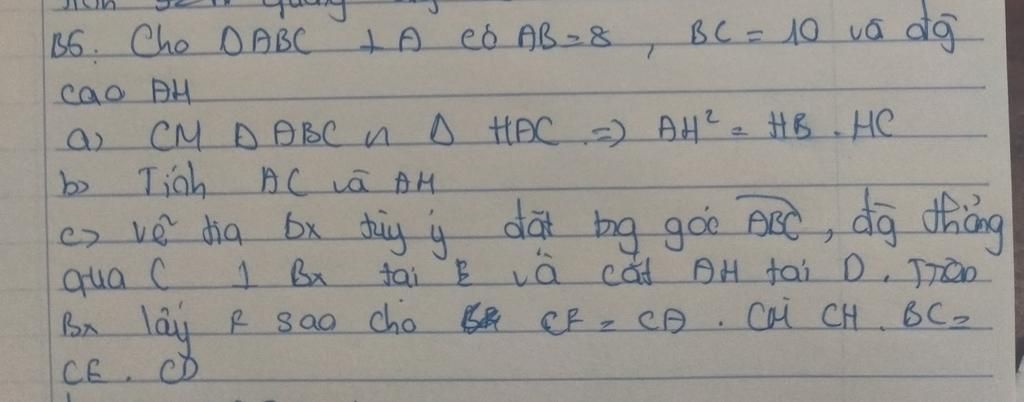 B6. Cho ΔABC ⊥ A có AB = 8 , BC = 10 và đg̃
cao AH
a) CM Δ ABC ᔕ Δ HAC => AH² = HB . HC
b) Tính AC và AH
c) vẽ tia bx tùy ý đặt tng góc ABC, đg̃ thẳng
qua C ⊥ Bx tại E và cắt AH tại D. Trên
Bx lấy F sao cho CF = CA . CM CH . BC =
CE . CD